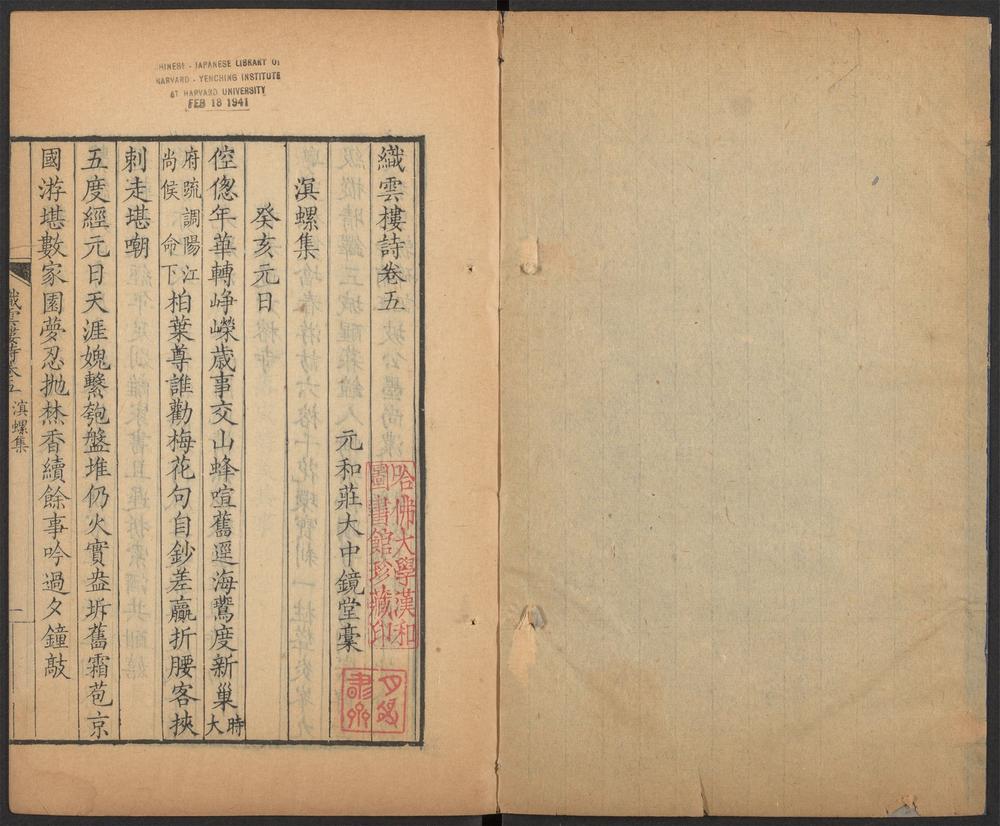 CHINESE - JAPANESE LIBRARY OF
HARVARD - YENCHING INSTITUTE
AT HARVARD UNIVERSITY
FEB 18 1941
織雲樓詩卷五
元和莊大中鏡堂稾
哈佛大學漢和
圖書館珍藏印
滇螺集
癸亥元日
倥傯年華轉崢嶸歲事交山蜂喧舊邏海鷰度新巢時大
府疏調陽江
尚侯命下
柏葉尊誰勸梅花句自鈔差贏折腰客挾
刺走堪嘲
五度經元日天涯媿繫匏盤堆仍火實盎坼舊霜苞京
國游堪數家園夢忍抛爇香續餘事吟過夕鐘敲
滇螺集
一